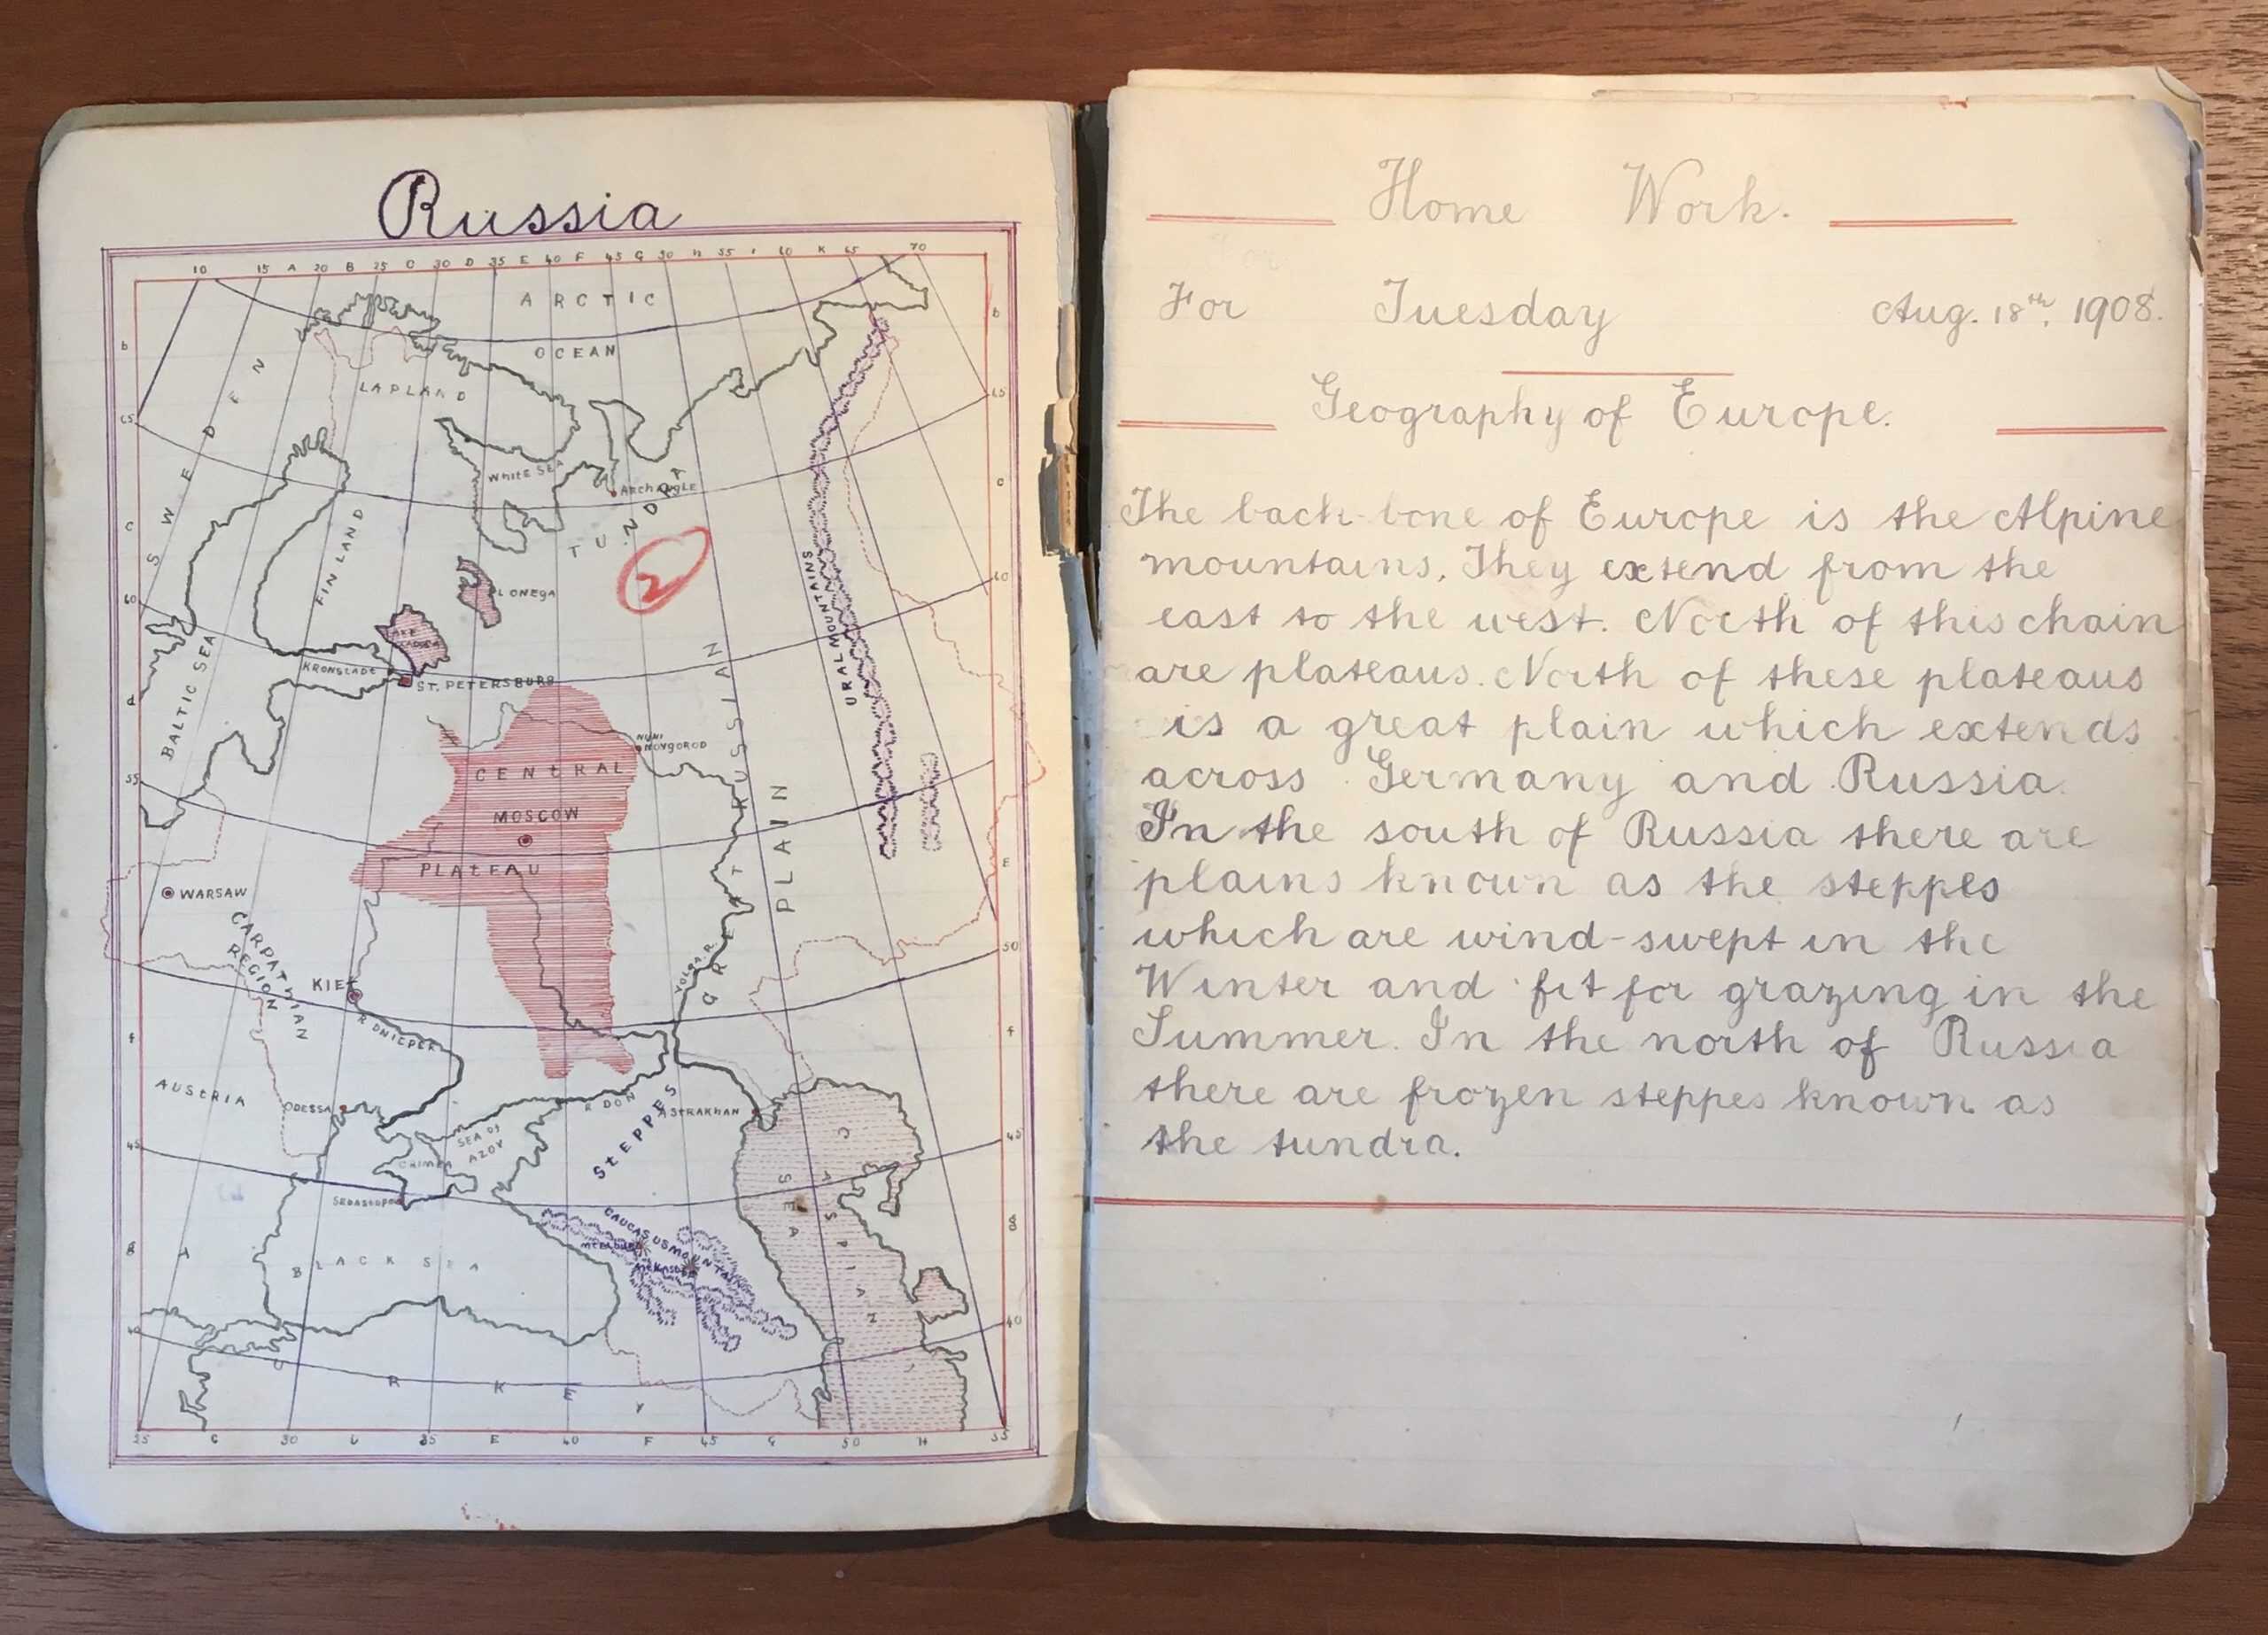 Russia
10 15 A 20 B 25 C 30 D 35 E 40 F 45 G 50 H 55 I 60 K 65 70
ARCTIC
OCEAN
b
b
SWEDEN
LAPLAND
65
65
WHITE SEA
ARCHANGLE
TUNDRA
C
C
FINLAND
L ONEGA
2
URAL MOUNTAINS
60
60
LAKE
LADOGA
KRONSLADT
ST. PETERSBURG
BALTIC SEA
d
NIJNI
NOVGOROD
GREAT RUSSIAN
PLAIN
CENTRAL
55
MOSCOW
PLATEAU
E
WARSAW
CARPATHIAN
REGION
50
KIEF
VOLGA R
R DNIEPER
f
f
AUSTRIA
ODESSA
R DON
ASTRAKHAN
STEPPES
SEA OF
AZOV
45
45
CRIMEA
SEBASTOPOL
CASPIAN
SEA
g
g
CAUCASUS MOUNTAINS
BLACK SEA
40
40
TURKEY
25 C 30 D 35 E 40 F 45 G 50 H 55
Home Work.
For Tuesday Aug. 18th, 1908.
Geography of Europe.
The back-bone of Europe is the Alpine
mountains. They extend from the
east to the west. North of this chain
are plateaus. North of these plateaus
is a great plain which extends
across Germany and Russia.
In the south of Russia there are
plains known as the steppes
which are wind-swept in the
Winter and fit for grazing in the
Summer. In the north of Russia
there are frozen steppes known as
the tundra.